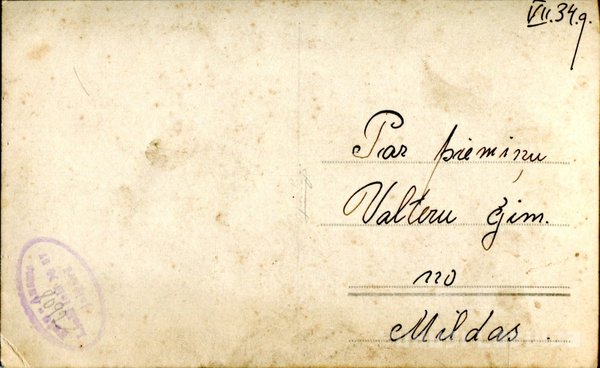 VII.34.g.
Par piemiņu
Valteru ģim.
no
Mildas.